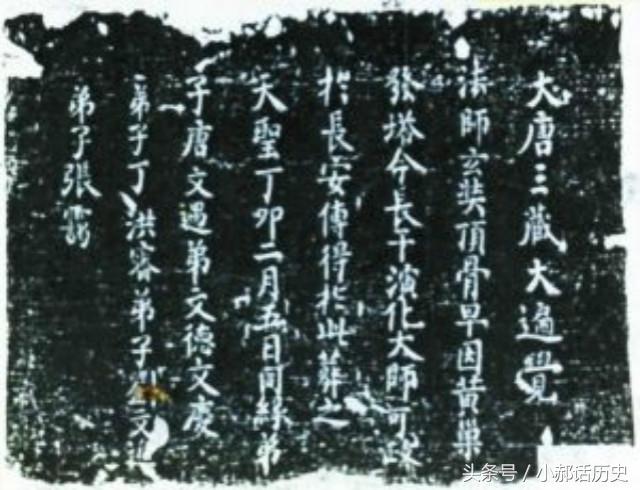 大唐三藏大遍覺
法師玄奘頂骨早因黃巢
發塔今長干演化大師可政
於長安傳得於此葬之
天聖丁卯二月五日同緣弟
子唐文遇弟文德文慶
弟子丁洪審弟子文
弟子張靄
头条号／小郝话历史